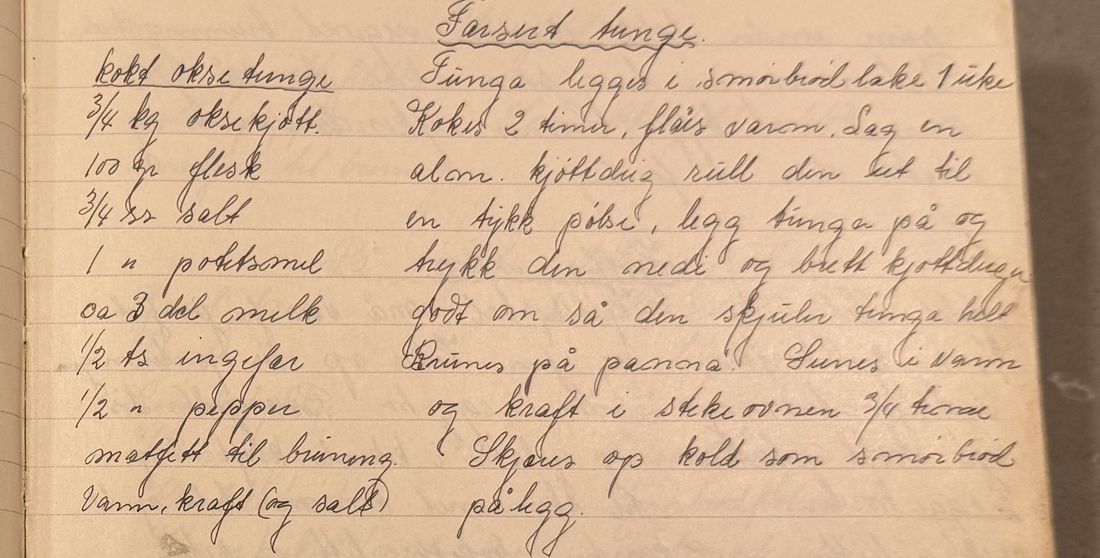 Farsert tunge.
kokt oksetunge
3/4 kg oksekjøtt.
100 gr flesk
3/4 ss salt
1 " potetsmel
ca 3 dcl melk
1/2 ts ingefær
1/2 " pepper
matfett til bruning.
Vann, kraft (og salt)
Tunga legges i smørbrød lake 1 uke
Kokes 2 timer, flåes varm. Lag en
alm. kjøttdeig rull den ut til
en tykk pølse, legg tunga på og
trykk den nedi og brett kjøttdeigen
godt om så den skjuler tunga helt
Brunes på panna. Surres i vann
og kraft i stekeovnen 3/4 time
Skjæres op kold som smørbrød
pålegg.